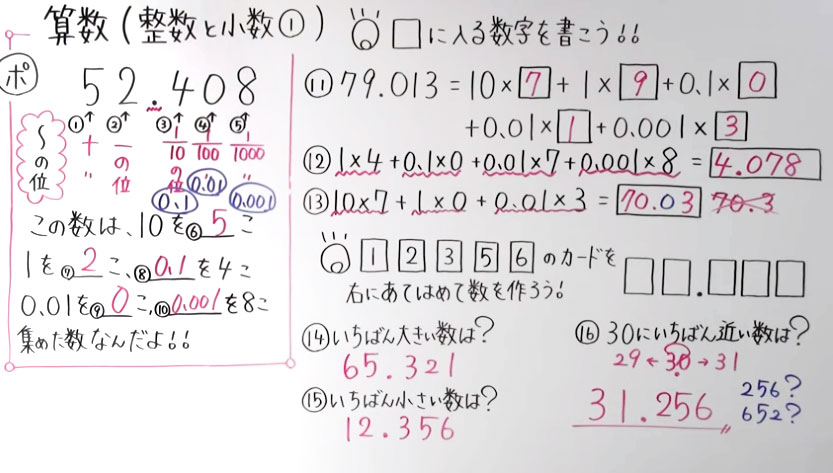 算数(整数と小数①) □に入る数字を書こう!!
ポ
52.408
①↑ ②↑ ③↑ ④↑ ⑤↑
〜の位
十〃 一の位 1/10の位 1/100〃 1/1000〃
0.1 0.01 0.001
この数は、10を⑥5こ
1を⑦2こ、⑧0.1を4こ
0.01を⑨0こ、⑩0.001を8こ
集めた数なんだよ!!
⑪79.013=10×7+1×9+0.1×0
+0.01×1+0.001×3
⑫1×4+0.1×0+0.01×7+0.001×8=4.078
⑬10×7+1×0+0.01×3=70.03 70.3
1 2 3 5 6 のカードを □□.□□□
右にあてはめて数を作ろう!
⑭いちばん大きい数は?
65.321
⑮いちばん小さい数は?
12.356
⑯30にいちばん近い数は?
29←30→31
31.256
256?
652?